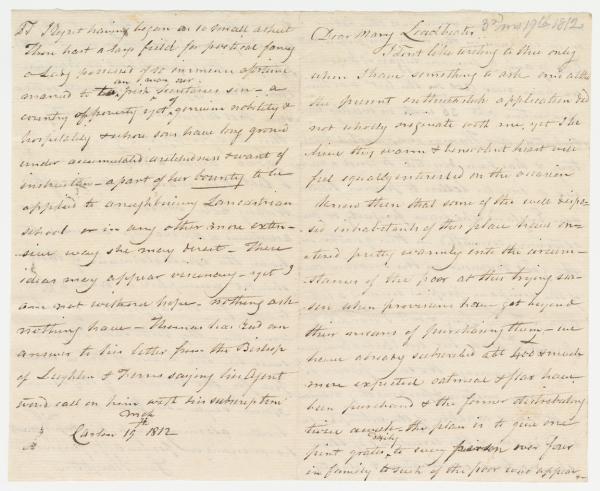 3rd mo 19th 1812
Dear Mary Leadbeater
I dont like writing to thee only
when I have something to ask and altho
the present enthusiastic application did
not wholly originate with me, yet I be
lieve thy warm & benevolent heart will
feel equally interested on the occasion
Know then that some of the well dispo
sed inhabitants of this place have en
tered pretty warmly into the circum
stances of the poor at this trying sea
son when provisions have got beyond
their means of purchasing them — we
have already subscribed abt 400 & much
more expected oatmeal & flax have
been purchased & the former distributing
twice a week — the plan is to give one
pint gratis daily to every person over four
in family to such of the poor who appear
I regret having began on so small a sheet
Thou hast a large field for poetical fancy
a Lady possessed of so immense a fortune
married to an Irish
country of poverty yet of genuine nobility &
hospitality & whose sons have long groaned
under accumulated wretchedness & want of
instruction — a part of her bounty to be
applied to a neighbouring Lancastrian
school or in any other more exten
sive way she may direct — These
ideas may appear visionary — yet I
am not without hope — nothing ask
nothing have — Thomas has had an
answer to his letter from the Bishop
of Leighlin & Ferns saying his Agent
would call on him with his subscription
Carlow 19th 1812